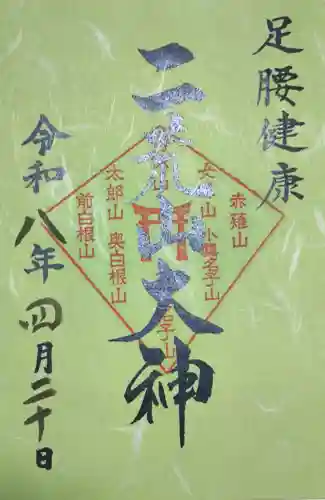 足腰健康
二荒山大神
令和八年四月二十日
赤薙山
小真名子山
太郎山 奥白根山
前白根山